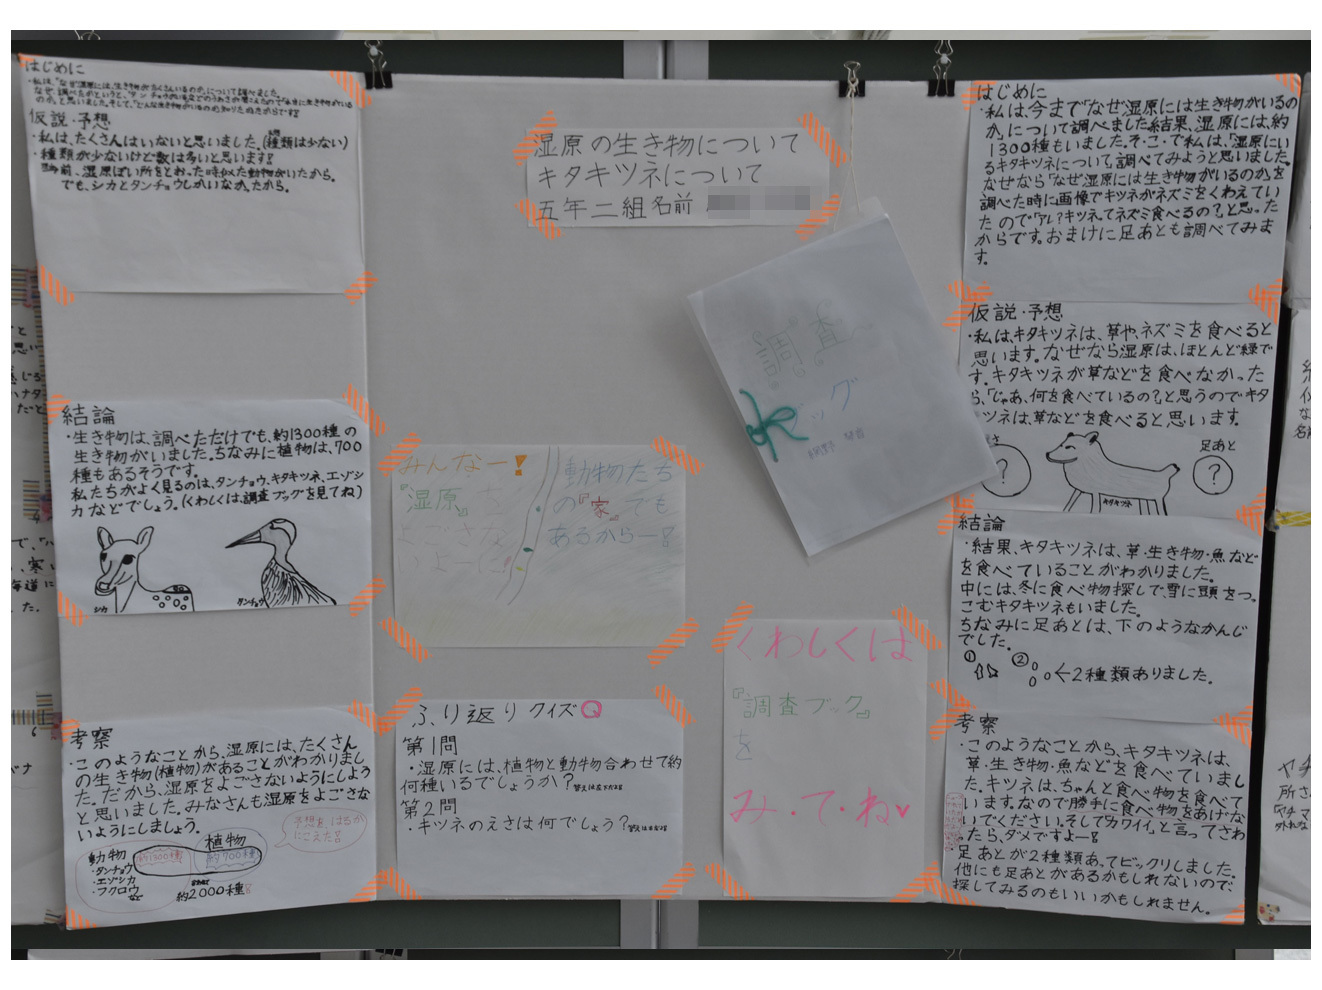 はじめに
・私は、「なぜ湿原には、生き物がたくさんいるのか」について調べました。
仮説・予想
・私は、たくさんはいないと思いました。(種類は少ない)
・種類が少ないけど数は多いと思います!!
でも、シカとタンチョウしかいなかったから。
結論
・生き物は、調べただけでも、約1300種の
生き物がいました。ちなみに植物は、700
種もあるそうです。
私たちがよく見るのは、タンチョウ、キタキツネ、エゾシ
カなどでしょう。(くわしくは、調査ブックを見てね)
シカ
タンチョウ
考察
・このようなことから、湿原には、たくさん
の生き物(植物)があることがわかりまし
た。だから、湿原をよごさないようにしよう
と思いました。みなさんも湿原をよごさな
いようにしましょう。
予想を、はるか
にこえた!!
動物
・タンチョウ
・エゾシカ
・フクロウ
など
約1300種
植物
約700種
合わせて
約2000種!!
湿原の生き物について
キタキツネについて
五年二組名前
調査
ブック
みんなー!
『湿原』を
よごさな
いよーに
動物たち
の『家』でも
あるからー!!
ふり返りクイズQ
第1問
・湿原には、植物と動物合わせて約
何種いるでしょうか?答えは左下だよ!!
第2問
・キツネのえさは何でしょう?
くわしくは
『調査ブック』
を
み・て・ね♥
はじめに
・私は、今まで「なぜ湿原には生き物がいるの
か」について調べました結果、湿原には、約
1300種もいました。そ・こ・で私は、「湿原にい
るキタキツネについて」調べてみようと思いました。
なぜなら「なぜ湿原には生き物がいるのか」を
調べた時に画像でキツネがネズミをくわえてい
たので「アレ?キツネってネズミ食べるの?」と思った
からです。おまけに足あとも調べてみま
す。
仮説・予想
・私は、キタキツネは、草や、ネズミを食べると
思います。なぜなら湿原は、ほとんど緑で
す。キタキツネが草などを食べなかった
ら、「じゃあ、何を食べているの?」と思うのでキタ
ツネは草などを食べると思います。
さ
?
キタキツネ
足あと
?
結論
・結果、キタキツネは、草・生き物・魚など
を食べていることがわかりました。
中には、冬に食べ物探しで、雪に頭をつっ
こむキタキツネもいました。
ちなみに足あとは、下のようなかんじ
でした。
① ② ←2種類ありました。
考察
・このようなことから、キタキツネは、
草・生き物・魚などを食べていまし
た。キツネは、ちゃんと食べ物を食べて
います。なので勝手に食べ物をあげな
いでください。そして「カワイイ」と言ってさわ
ったら、ダメですよー!!
・足あとが2種類あってビックリしました。
他にも足あとがあるかもしれないので
探してみるのもいいかもしれません。